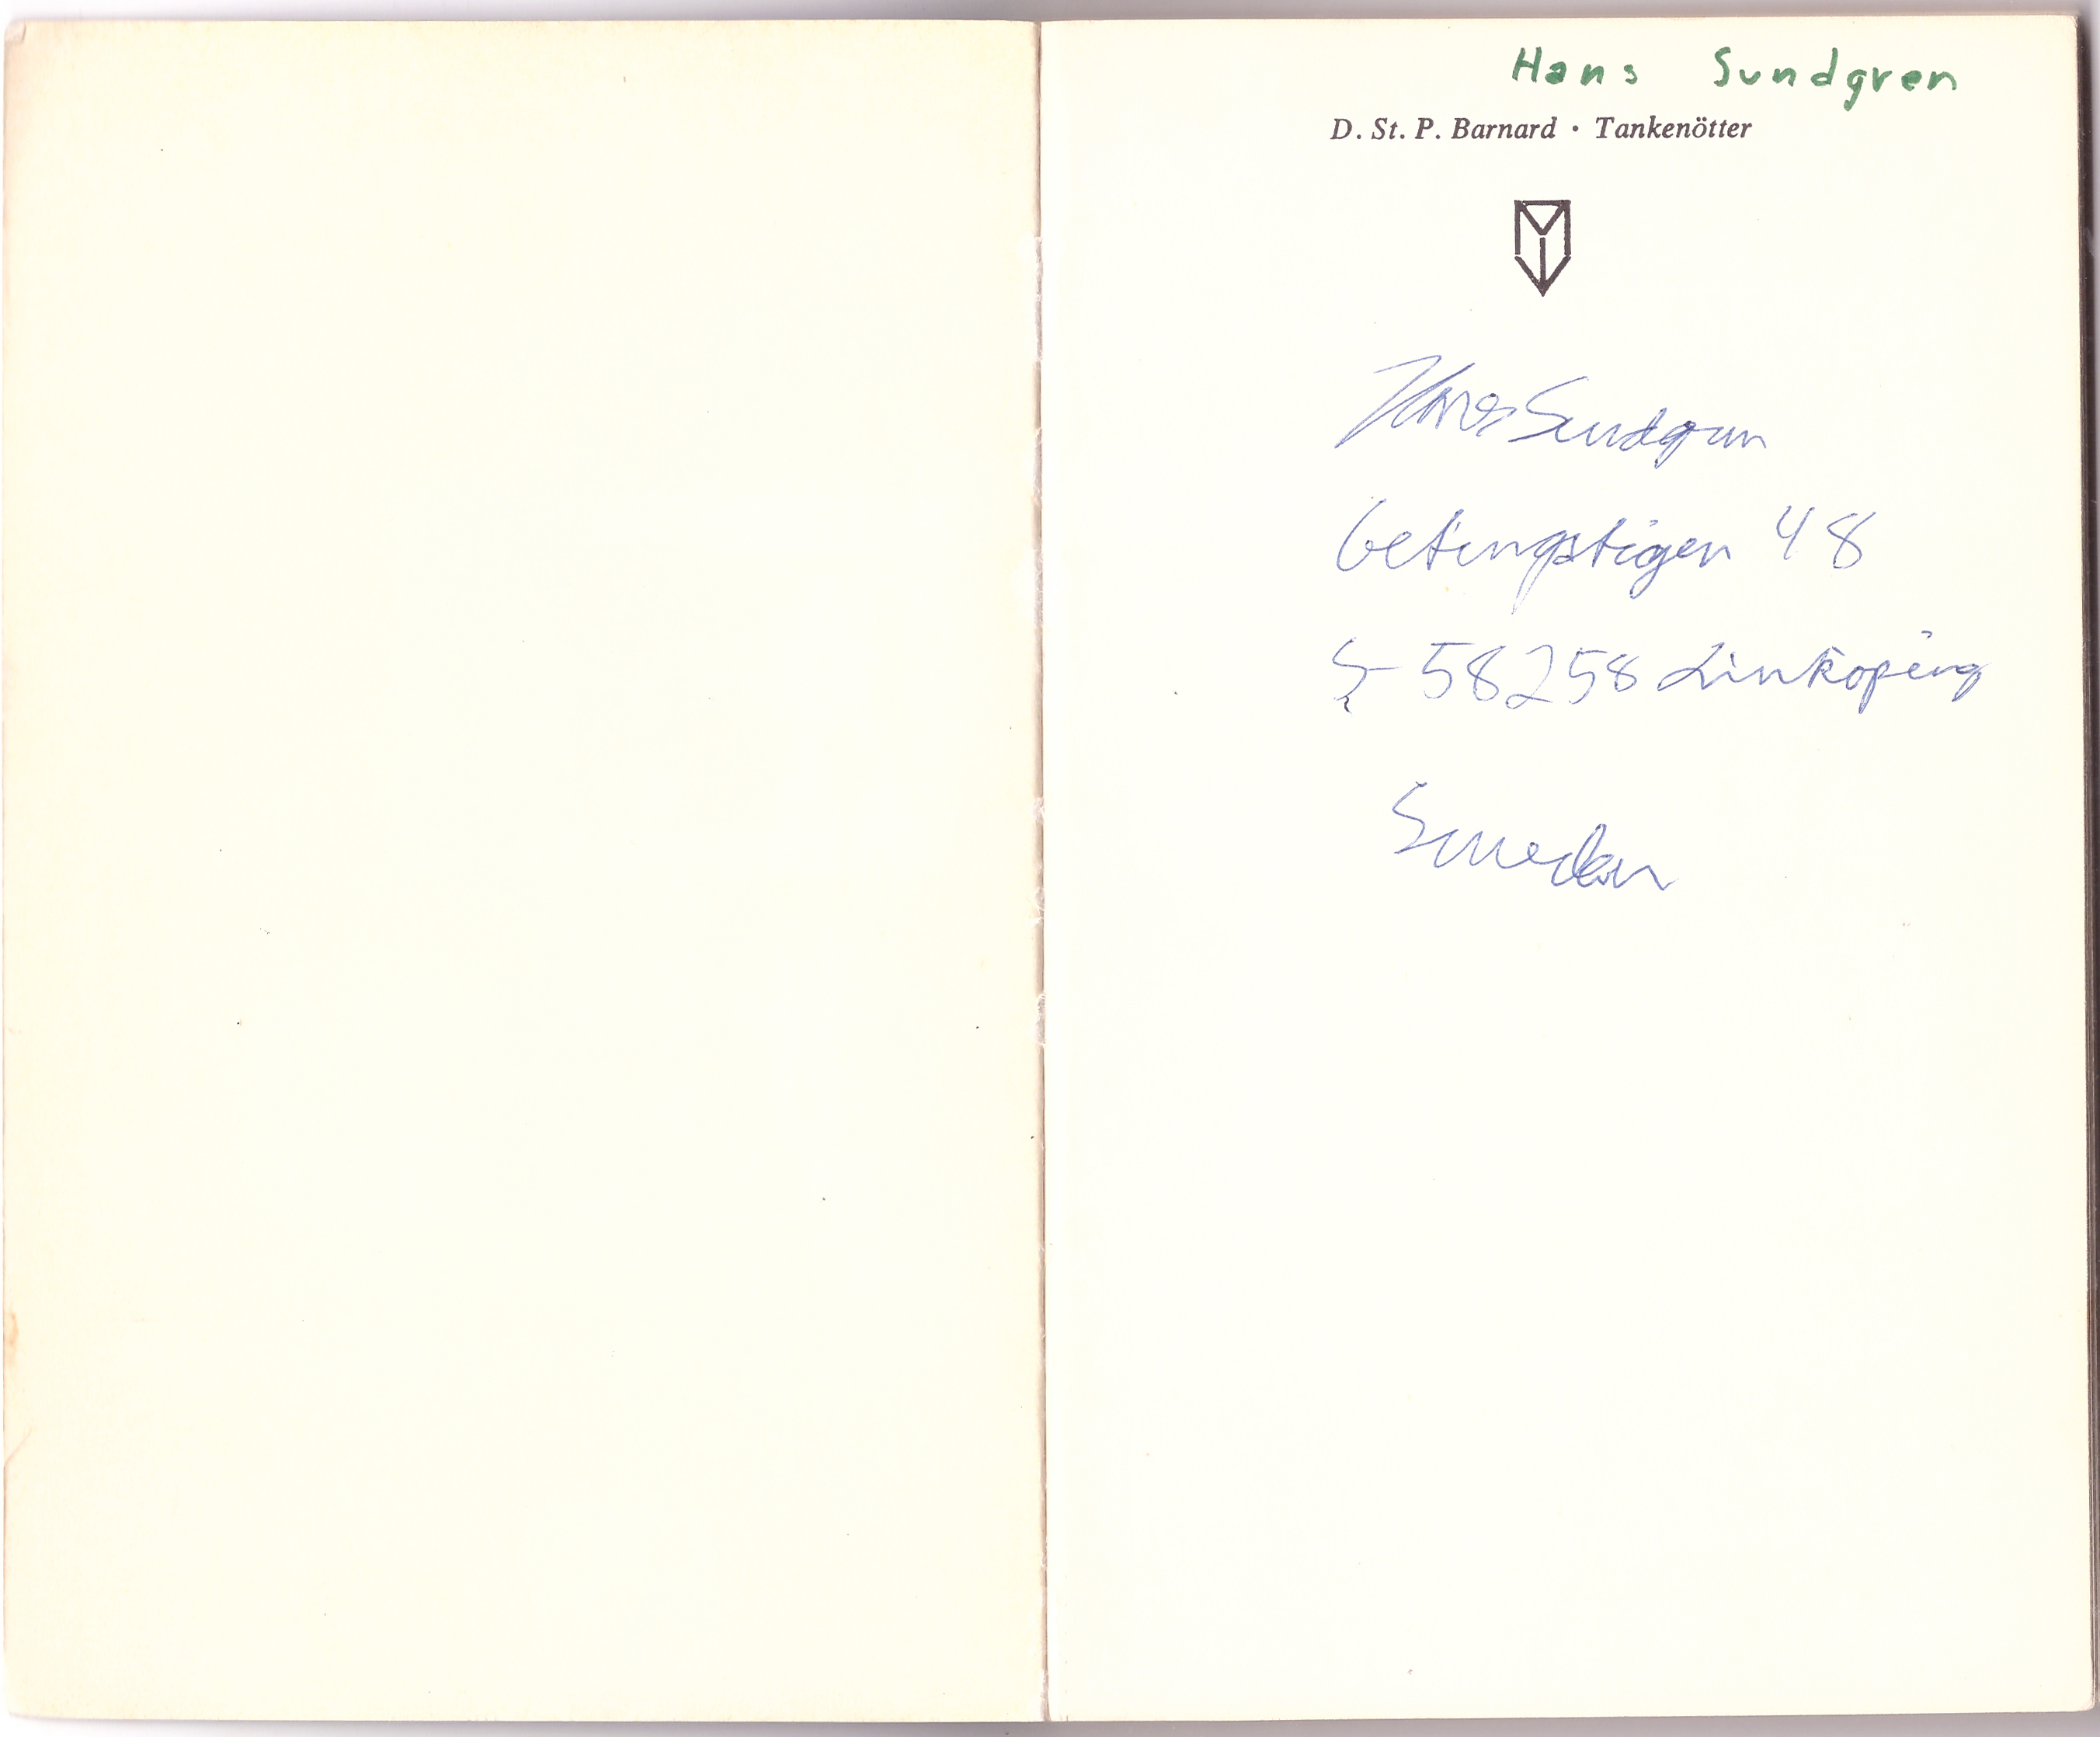 Hans Sundgren
D. St. P. Barnard · Tankenötter
Hans Sundgren
Getingstigen 48
S-58258 Linköping
Sweden